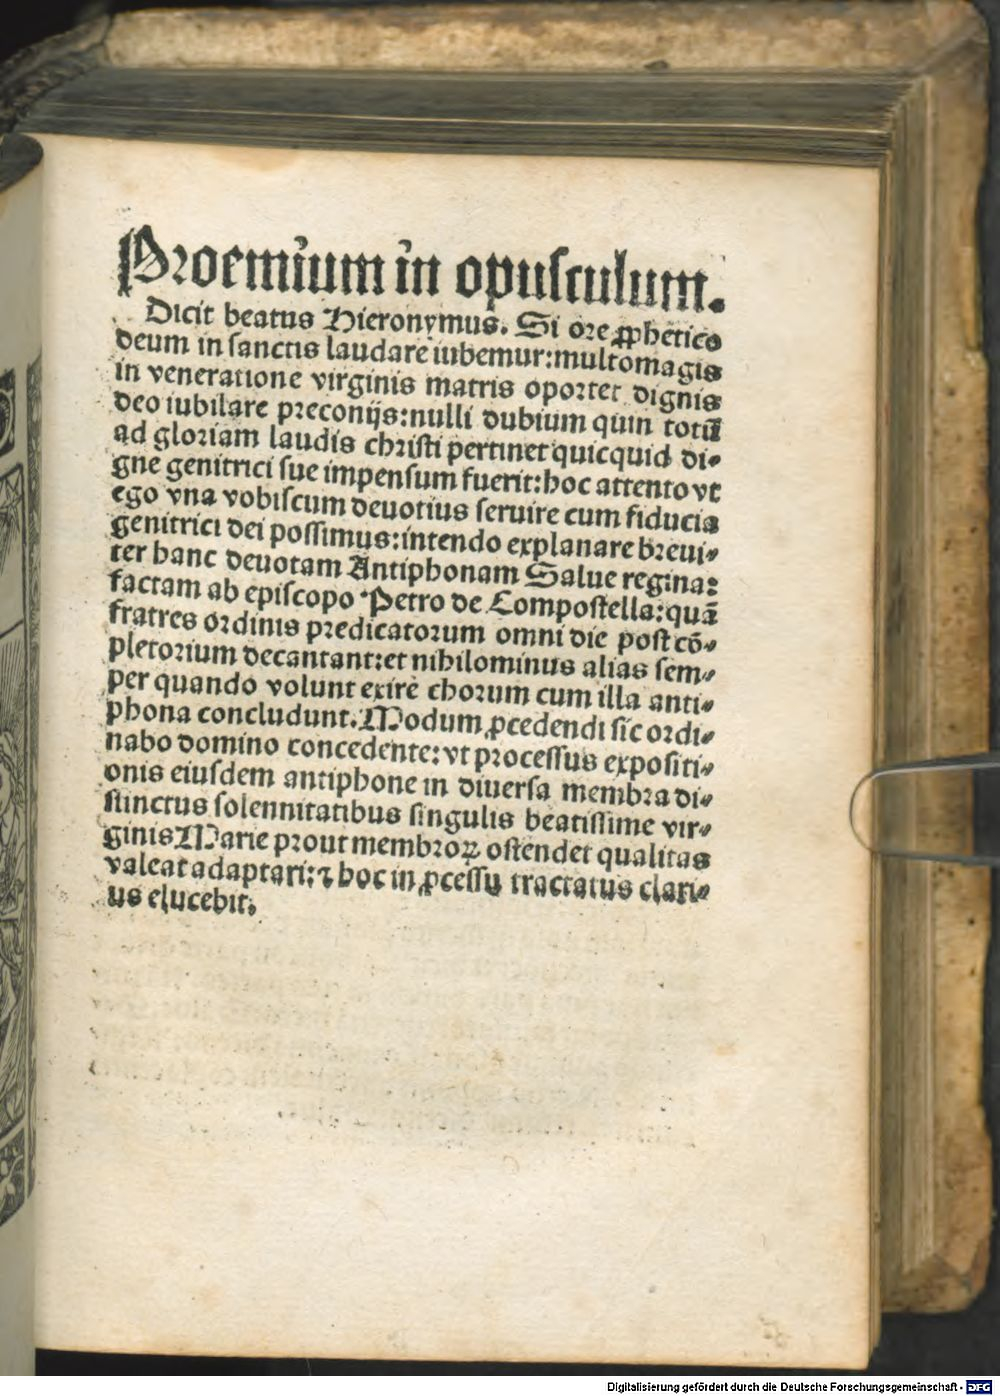 Proemium in opusculum.
Dicit beatus Hieronymus. Si ore ꝓphetico
deum in sanctis laudare iubemur: multomagis
in veneratione virginis matris oportet dignis
deo iubilare preconijs: nulli dubium quin totū
ad gloriam laudis christi pertinet quicquid di⸗
gne genitrici sue impensum fuerit: hoc attento vt
ego vna vobiscum deuotius seruire cum fiducia
genitrici dei possimus: intendo explanare breui⸗
ter hanc deuotam Antiphonam Salue regina:
factam ab episcopo Petro de Compostella: quā
fratres ordinis predicatorum omni die post cō⸗
pletorium decantant: et nihilominus alias sem⸗
per quando volunt exire chorum cum illa anti⸗
phona concludunt. Modum ꝓcedendi sic ordi⸗
nabo domino concedente: vt processus expositi⸗
onis eiusdem antiphone in diuersa membra di⸗
stinctus solennitatibus singulis beatissime vir⸗
ginis Marie prout membroꝝ ostendet qualitas
valeat adaptari: ⁊ hoc in ꝓcessu tractatus clari⸗
us elucebit.
Digitalisierung gefördert durch die Deutsche Forschungsgemeinschaft - DFG